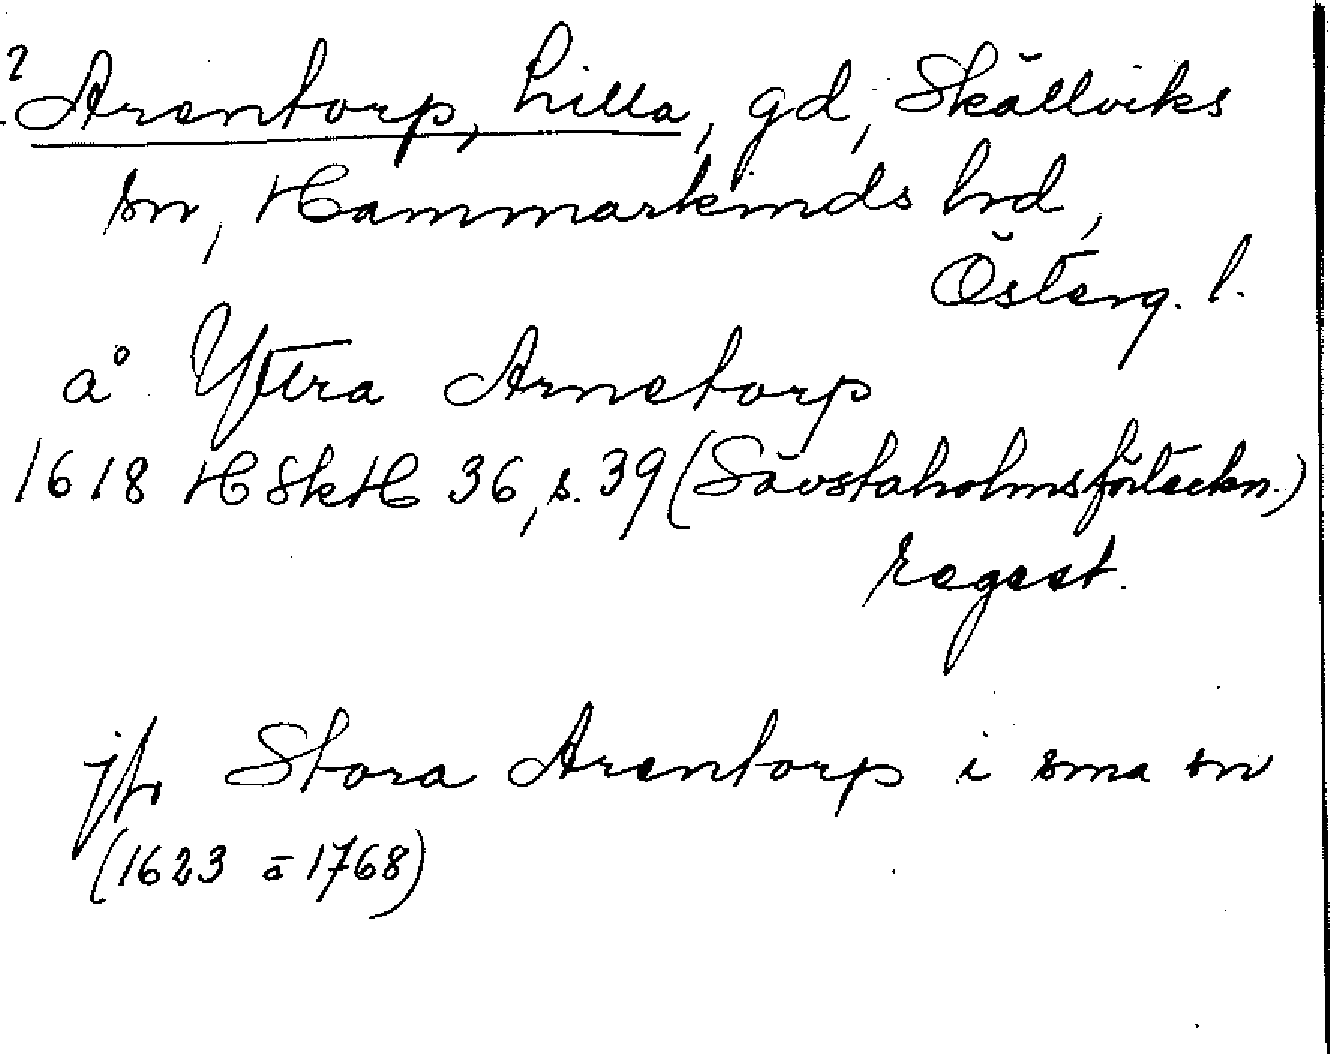 ? Arentorp, Lilla, gd, Skällviks
sn, Hammarkinds hrd,
Österg. l.
å Yttra Arnetorp
1618 HSkH 36, s. 39 (Sävstaholmsförteckn.)
regest.
jfr Stora Arentorp i sma sn
(1623 o 1768)